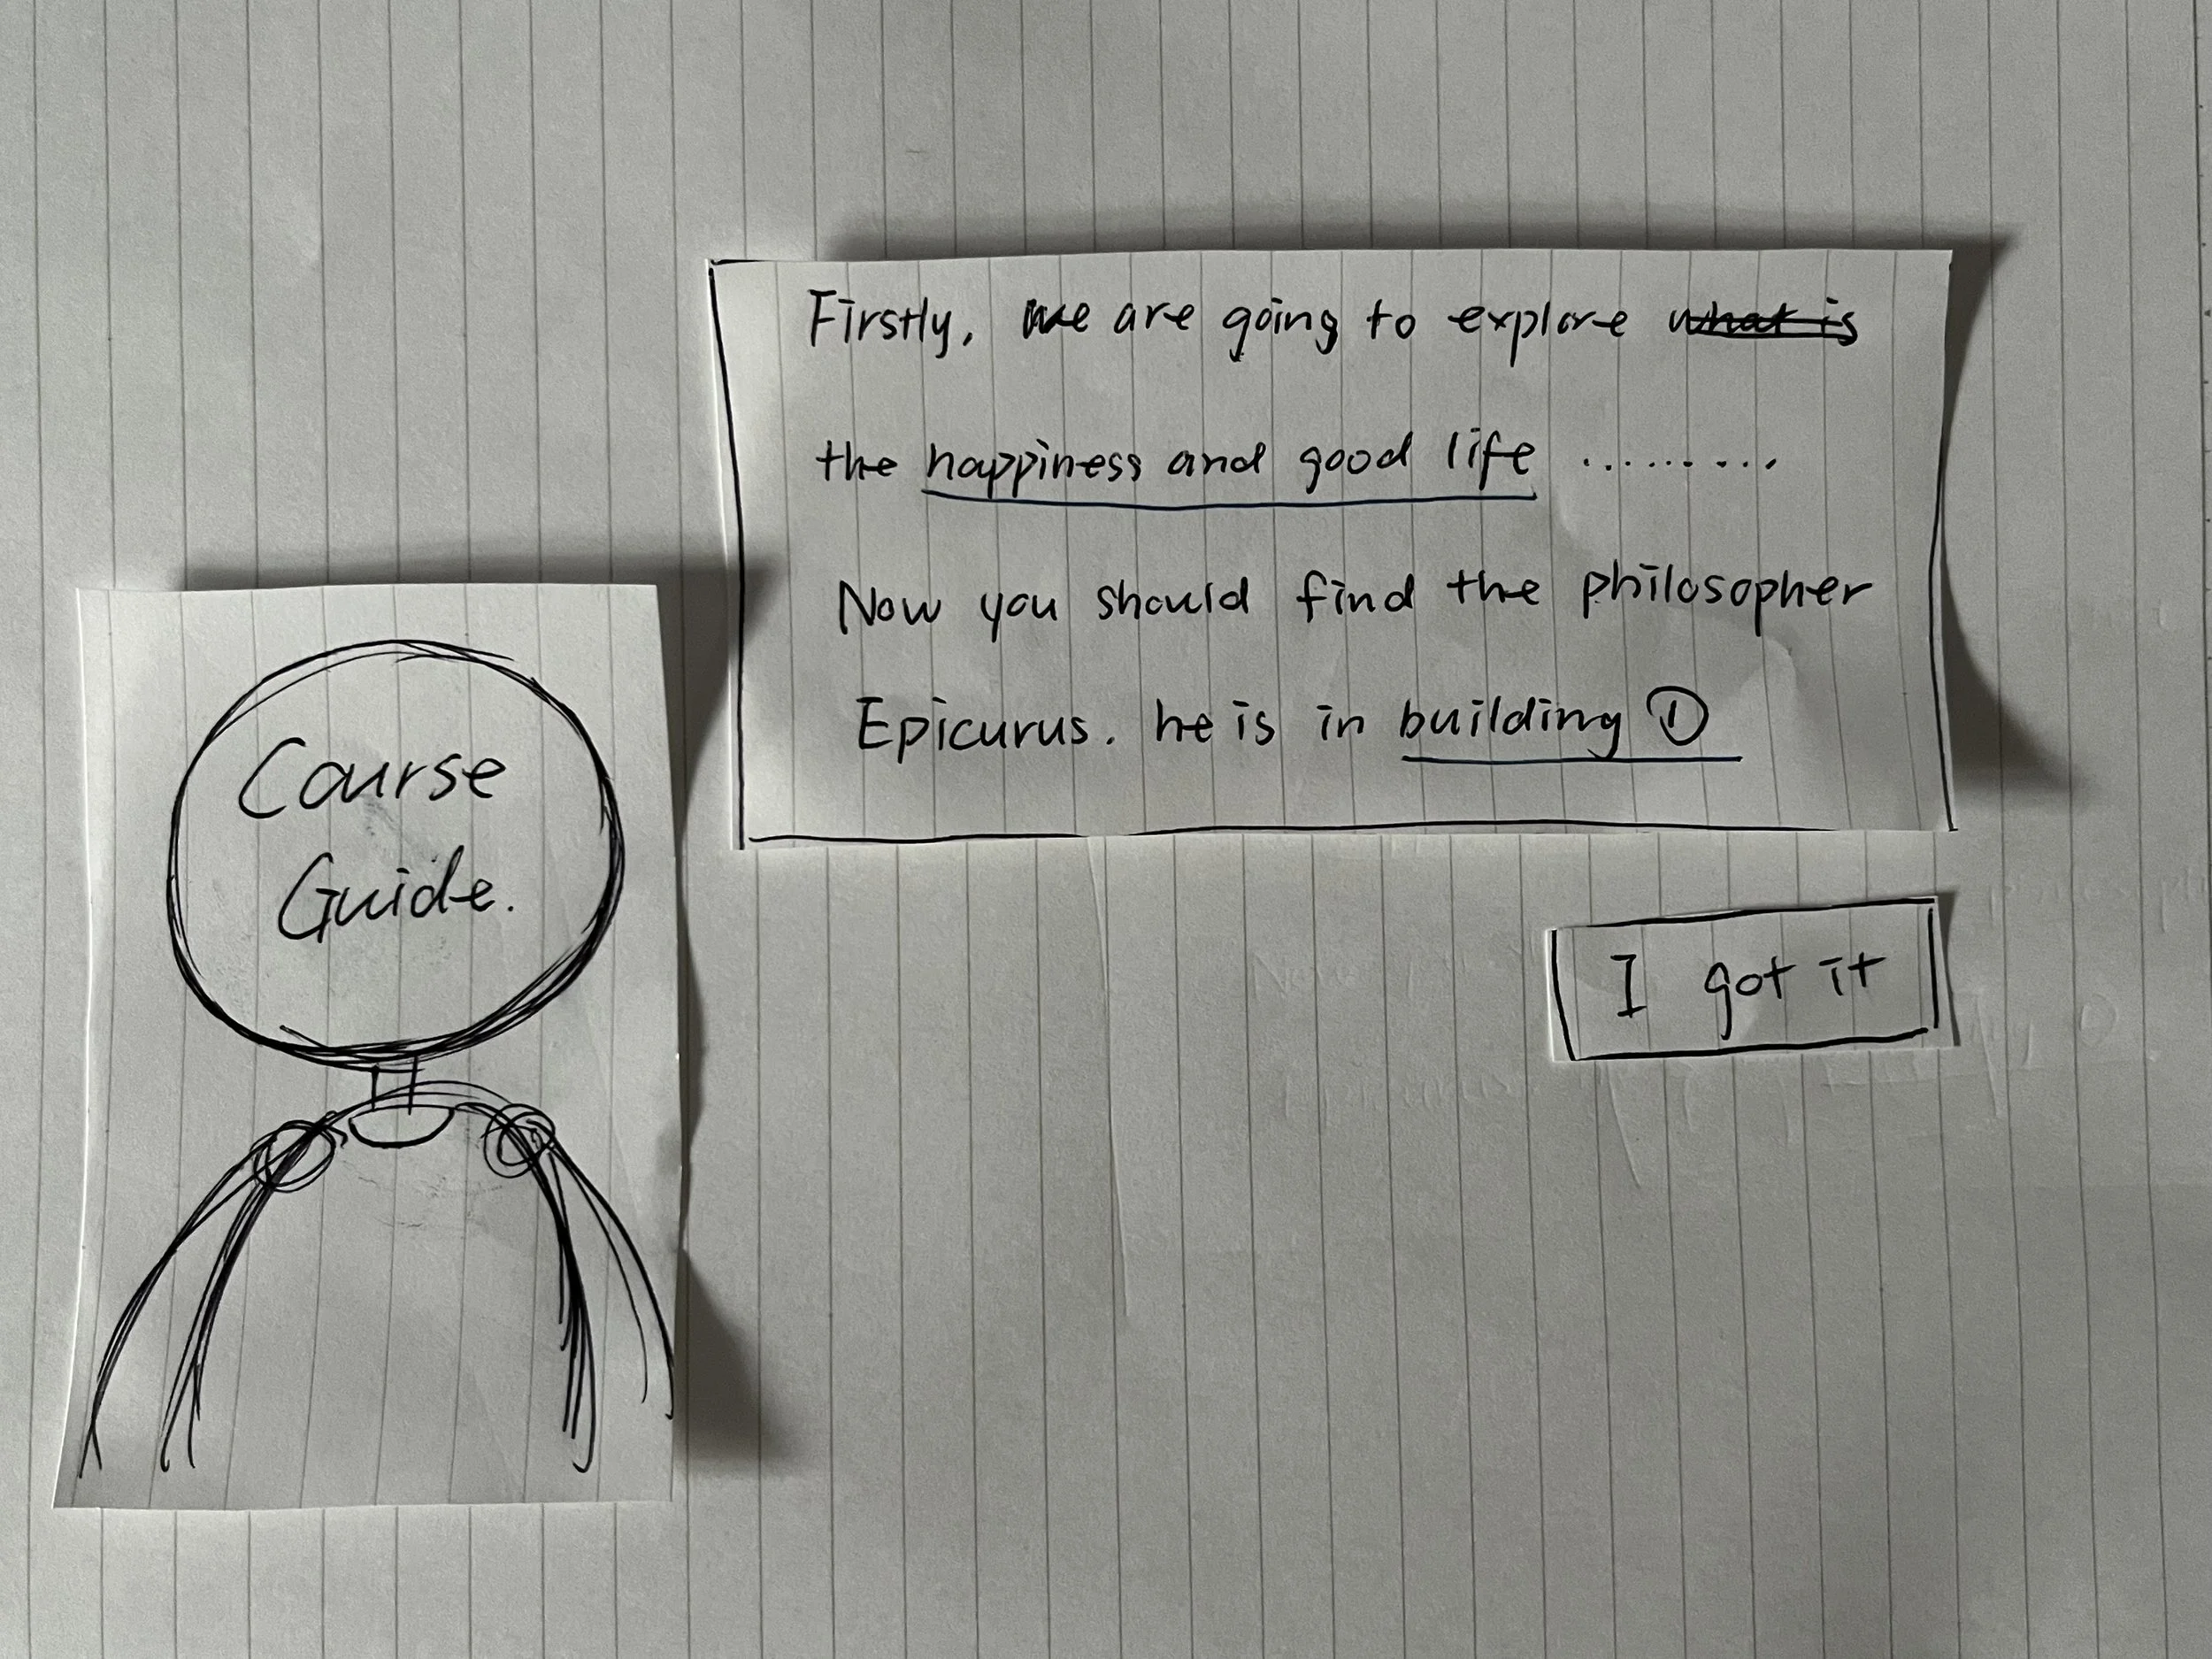 Firstly, we are going to explore what is
the happiness and good life .........
Now you should find the philosopher
Epicurus. he is in building ①
Course
Guide.
I got it